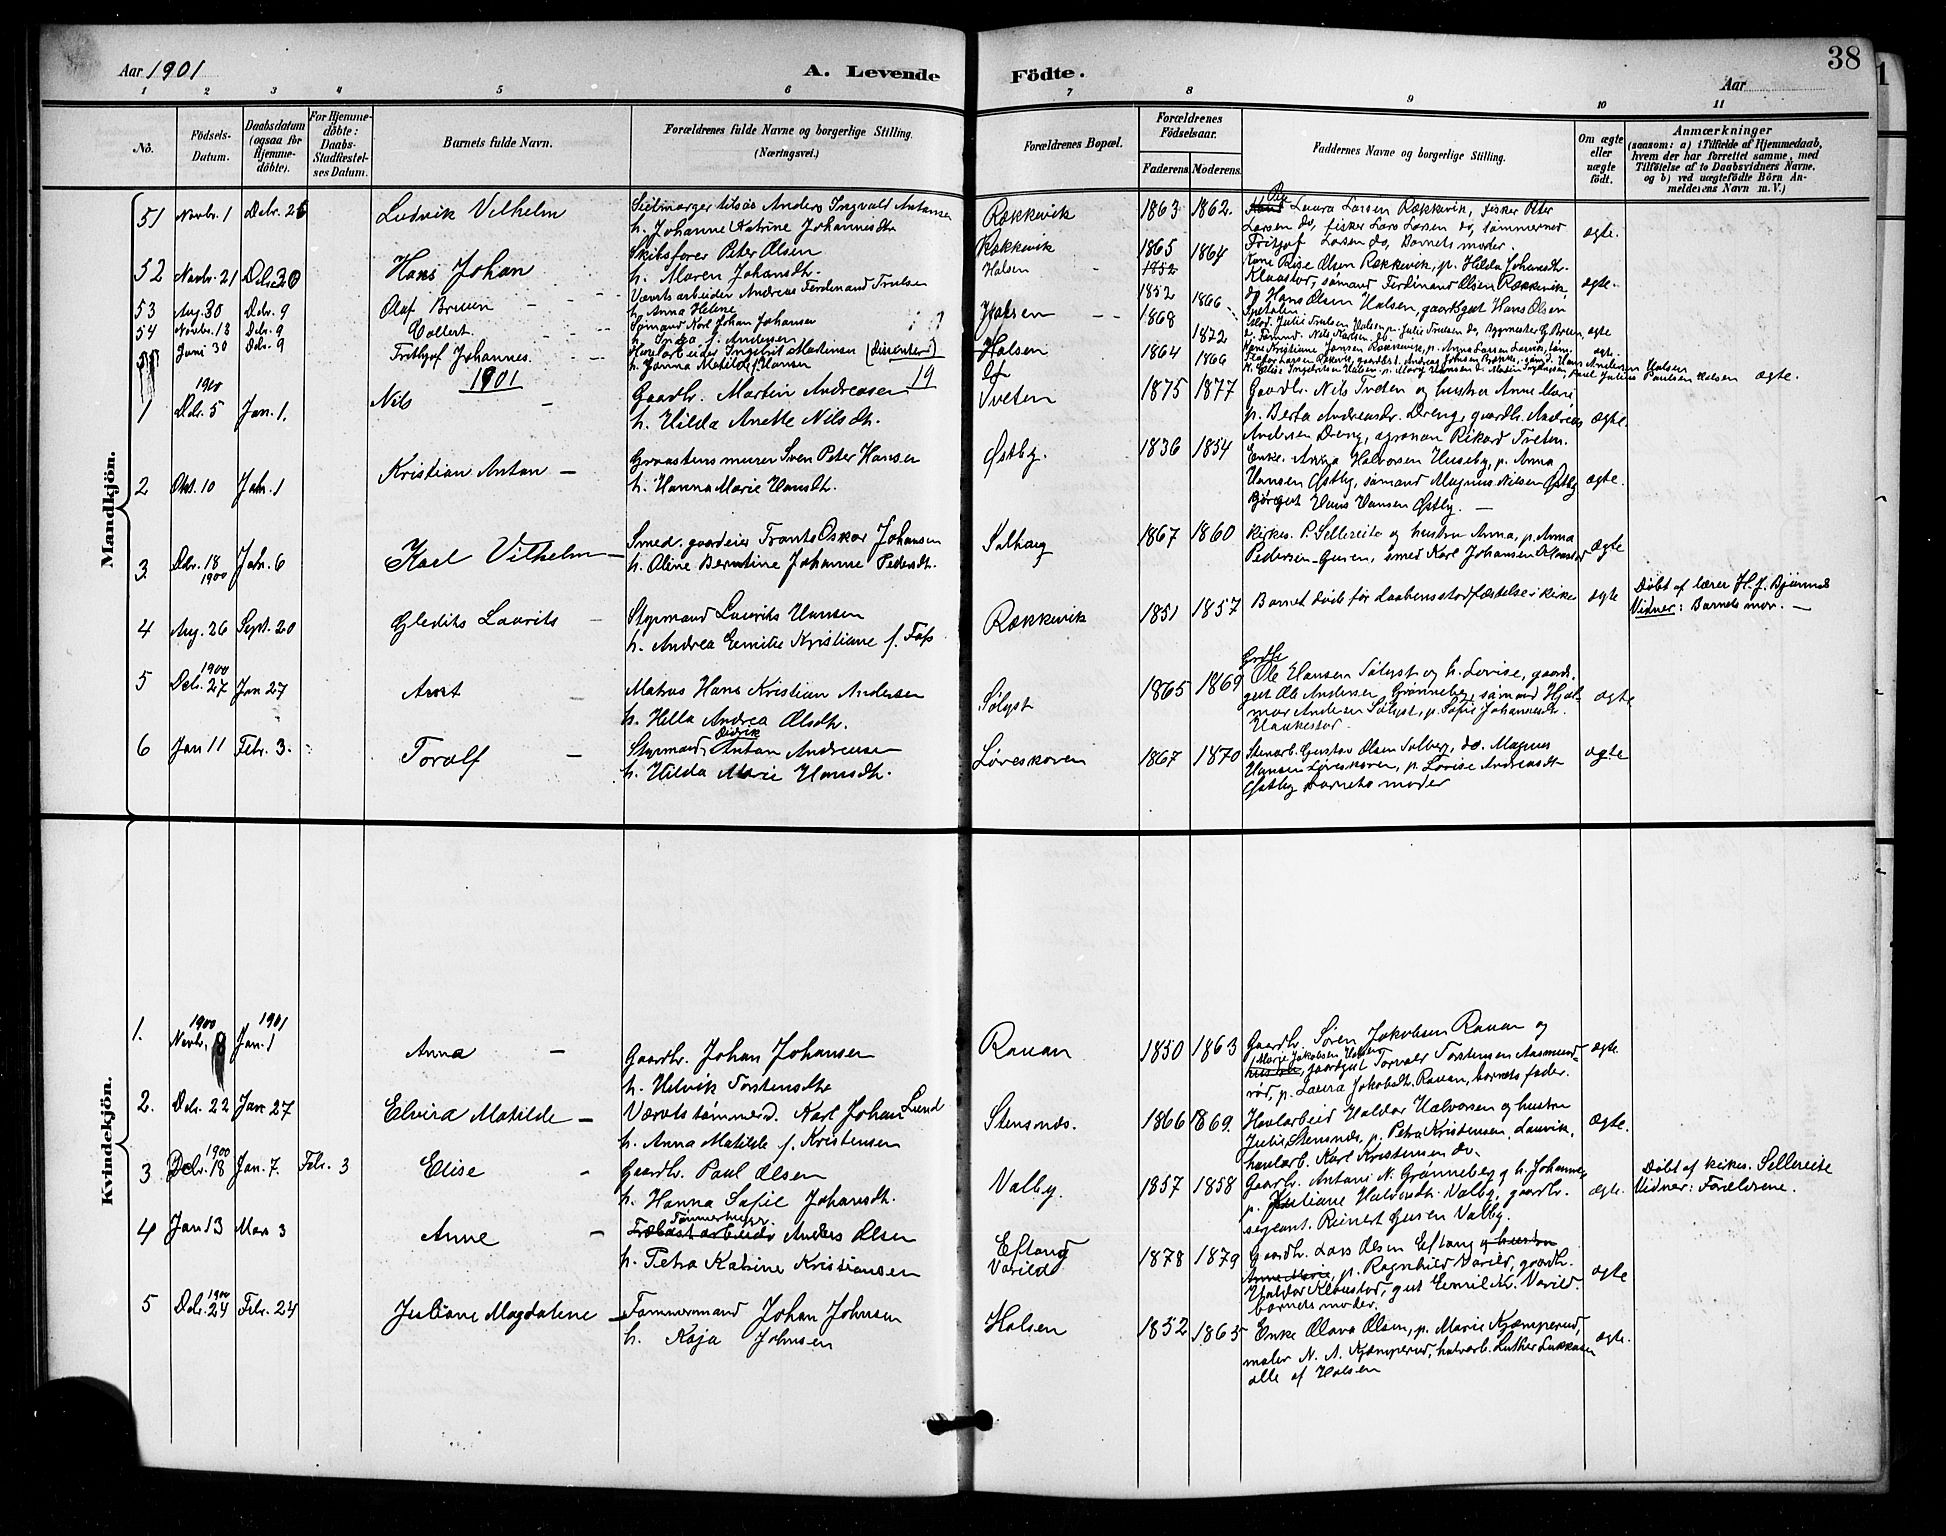 38
Aar 1901
A. Levende
Födte.
Aar
1 2 3 4 5 6 7 8 9 10 11
No.
Födsels-Datum.
Daabsdatum (ogsaa for Hjemmedöbte).
For Hjemmedöbte: Daabs-Stadfæstelses Datum.
Barnets fulde Navn.
Forældrenes fulde Navne og borgerlige Stilling.
(Næringsvei.)
Forældrenes Bopæl.
Forældrenes Födselsaar.
Faderens. Moderens.
Faddernes Navne og borgerlige Stilling.
Om ægte eller uægte födt.
Anmærkninger
(saasom: a) i Tilfælde af Hjemmedaab, hvem der har forrettet samme, med Tilföielse af to Daabsvidners Navne, og b) ved uægtefödte Börn Anmelderens Navn m. V.)
Mandkjön.
51 Novbr. 1 Debr. 26 Ludvik Vilhelm
Anders Ingvald Antonsen
h. Johanne Katrine Johannesdtr
Rækkevik 1863 1862
Laura Larsen Rækkevik, fisker Peter
Larsen do, fisker Lars Larsen do, tømmermd
Fritjof Larsen do, Barnets moder.
ægte.
52 Novbr. 21 Debr. 30 Hans Johan
Skibsfører Peter Olsen
h. Maren Johansdtr.
Rækkevik 1865 1864
Olsen Rækkevik, p. Hilda Johansdtr.
Klaastad, sømand Ferdinand Olsen Rækkevik,
do Hans Olsen Halsen, gaardbgut Hans Olsen
ægte.
53 Aug. 30 Debr. 9 Olaf Bruun
Værftsarbeider Andreas Ferdinand Trulsen
h. Anna Helene
Halsen 1852 1866
ægte
54 Novbr. 13 Debr. 9 Colbert
Sømand Karl Johan Johansen
h. Inda f. Andersen
Halsen 1868 1872
ægte.
55 Juni 30 Debr. 9 Frithjof Johannes
Ingebrit Martinsen (dissenter)
h. Janna Matilde f. Hansen
1864 1866
Paul Julius Paulsen Halsen ægte.
1901
19
1 1900 Dbr. 5 Jan. 1. Nils
Gaardbr. Martin Andreasen
h. Hilda Anette Nilsdtr.
Tveten 1875 1877
Gaardbr. Nils Tveten og hustru Anne Marie,
p. Berta Andreasdr. Dreng, gaardbr. Andreas
Andersen Dreng, agronom Rikard Tveten.
ægte.
2 Okt. 10 Jan. 1 Kristian Anton
Graastensmurer Sven Peter Hansen
h. Hanna Marie Hansdtr.
Østby. 1836 1854
Enke. Anna Halvorsen Huseby, p. Anna
Hansen Østby, sømand Magnus Nilsen Østby
Hans Hansen Østby.
ægte.
3 Dbr. 18 1900 Jan. 6 Karl Vilhelm
Smed. gaardeier Frants Oskar Johansen
h. Oline Berntine Johanne Pedersdtr.
Solhaug 1867 1860
Kirkes. P. Sellereite og hustru Anna, p. Anna
Pedersen Gusen, smed Karl Johansen Klaastad
ægte
4 Aug. 26 Sept. 20 Gleditz Laurits
Styrmand Laurits Hansen
h. Andrea Emilie Kristiane f. Foss
Rækkevik 1851 1857
Barnet døde før Daabens stadfæstelse i kirken
ægte
Döbt af lærer H. J. Bjønnes
Vidner: Barnets mor.
5 1900 Debr. 27 Jan 27 Arvit
Matros Hans Kristian Andersen
h. Hella Andrea Olsdtr.
Sølyst 1865 1869
Grdbr
Ole Hansen Sølyst og h. Lovise, gaard-
gut Ole Andersen Grønneberg, sømand Hjal-
mar Andersen Sølyst, p. Sofie Johannesdtr.
Haakestad.
ægte
6 Jan 11 Febr. 3. Toralf
Styrmand Didrik Anton Andreasen
h. Hilda Marie Hansdtr.
Løveskoven 1867 1870
Stenarb. Gustav Olsen Solberg, do. Magnus
Hansen Løveskoven, p. Lovise Andreasdtr
Østby barnets moder
ægte
Kvindekjön.
1. 1900 Novbr. 8 1901 Jan. 1 Anna
Gaardbr. Johan Johansen
h. Helvik Torstensdtr
Rauan 1850 1863
Gaardbr. Søren Jakobsen Rauan og
Marie Jakobsen
gaardgut Torvald Torstensen Aasmund-
rød, p. Laura Jakobsdtr. Rauan, barnets fader.
ægte.
2. Dbr. 22 Jan 27 Elvira Matilde
Værftstømmermd. Karl Johan Lund
h. Anna Matilde f. Kristensen
Stensnds. 1866 1869.
Hvalarbeid Haldor Halvorsen og hustru
Julie, Stensnds, p. Petra Kristensen, Laurvik,
hvalarb. Karl Kristensen do.
ægte.
3 1900 Debr. 18 Jan. 7. Febr. 3 Elise
Gaardbr. Paul Olsen
h. Hanna Sofie Johansdtr.
Valby. 1857 1858
Gaardbr. Antoni N. Grønneberg og h. Johanne,
p. Juliane Halvorsdtr. Valby, gaardbr.
sergeant. Reinert Gusen Valby.
ægte.
Döbt af kirkes. Sellereite
Vidner: Forældrene.
4 Jan 13 Mars 3 Anne
Tømmerhugg.
Anders Olsen
h. Petra Katrine Kristiansen
Eftang
Varild 1878 1879
Gaardbr. Lars Olsen Eftang og hustru
Anne Marie, p. Ragnhild Varild, gaardbr.
Haldor Klaastad, gut Emil Kr. Varild.
barnets moder.
ægte
5 1900 Debr. 24 Febr. 24 Juliane Magdalene
Tømmermand Johan Johnsen
h. Kaja Johnsen
Halsen 1852 1865
Enke Olava Olsen, p. Marie Kjæmperud,
maler N. A. Kjæmperud, hvalarb. Luther Lukkasen
alle af Halsen
ægte.